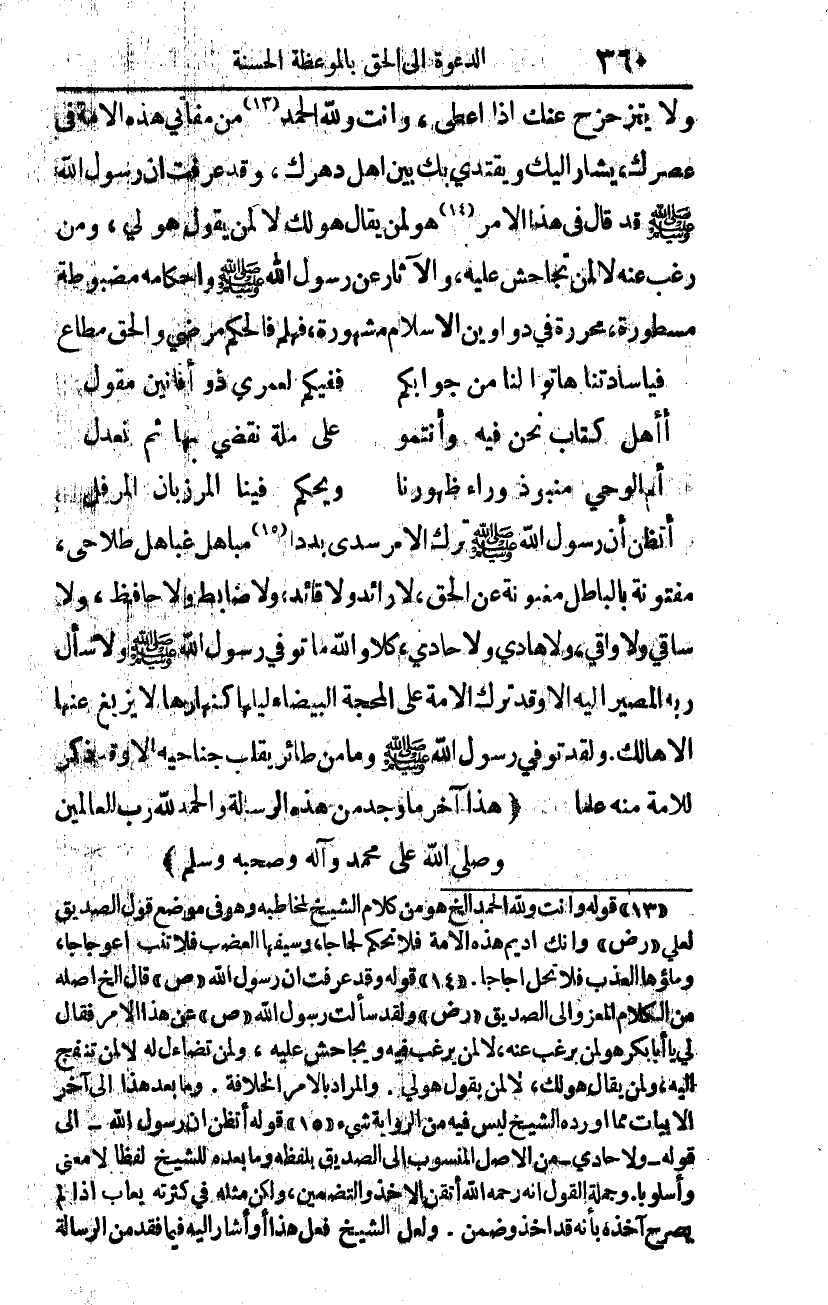 ٣٦٠ الدعوة الى الحق بالموعظة الحسنة
ولا يتزحزح عنك اذا اعطى ، وانت ولله الحمد (١٣) من مفاتي هذه الامة في
عصرك ، يشار اليك ويقتدي بك بين اهل دهرك ، وقد عرفت ان رسول الله
ﷺ قد قال في هذا الامر (١٤) هو لمن يقال هو لك لا لمن يقول هو لي ، ومن
رغب عنه لا لمن تجاحش عليه ، والآثار عن رسول الله ﷺ واحكامه مضبوطة
مسطورة ، محررة في دواوين الاسلام مشهورة ، فهلم فالحكم مرضي والحق مطاع
فيا سادتنا هاتوا لنا من جوابكم ففيكم لعمري ذو أفانين مقول
أأهل كتاب نحن فيه وأنتمو على ملة نقضي بها ثم نعدل
أم الوحي منبوذ وراء ظهورنا ويحكم فينا المرزبان المرفل
أتظن أن رسول الله ﷺ ترك الامر سدى بددا (١٥) مباهل غباهل طلاحى ،
مفتونة بالباطل مغبونة عن الحق ، لا رائد ولا قائد ، ولا ضابط ولا حافظ ، ولا
ساقي ولا واقي ، ولا هادي ولا حادي ، كلا والله ما توفي رسول الله ﷺ ولا سأل
ربه المصير اليه الا وقد ترك الامة على المحجة البيضاء ليلها كنهارها لا يزيغ عنها
الا هالك . ولقد توفي رسول الله ﷺ وما من طائر يقلب جناحيه الا وقد ذكر
للامة منه علما ﴿ هذا آخر ما وجد من هذه الرسالة والحمد لله رب العالمين
وصلى الله على محمد وآله وصحبه وسلم ﴾
«١٣» قوله وانت ولله الحمد الخ هو من كلام الشيخ لمخاطبه وهو في موضع قول الصديق
لعلي «رض» وانك اديم هذه الامة فلا تحكم لجاجا ، وسيفها العضب فلا تنب اعوجاجا ،
وماؤها العذب فلا تحل اجاجا . «١٤» قوله وقد عرفت ان رسول الله «ص» قال الخ اصله
من الكلام المعزو الى الصديق «رض» ولقد سألت رسول الله «ص» عن هذا الامر فقال
لي يا أبا بكر هو لمن يرغب عنه ، لا لمن يرغب فيه ويجاحش عليه ، ولمن تضاءل له لا لمن تنفج
اليه ، ولمن يقال هو لك ، لا لمن يقول هو لي . والمراد بالامر الخلافة . وما بعد هذا الى آخر
الابيات مما اورده الشيخ ليس فيه من الرواية شيء «١٥» قوله أتظن ان رسول الله — الى
قوله — ولا حادي — من الاصل المنسوب الى الصديق بلفظه وما بعده للشيخ لفظا لا معنى
وأسلوبا . وجملة القول انه رحمه الله أتقن الاخذ والتضمين ، ولكن مثله في كثرته يعاب اذا لم
يصرح آخذه بأنه قد اخذ وضمن . ولعل الشيخ فعل هذا أو أشار اليه فيما فقد من الرسالة